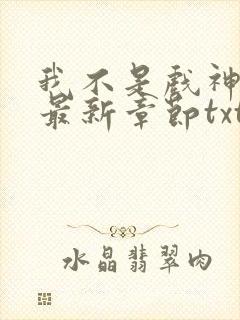 我不是戏神
最新章节txt
水晶翡翠肉